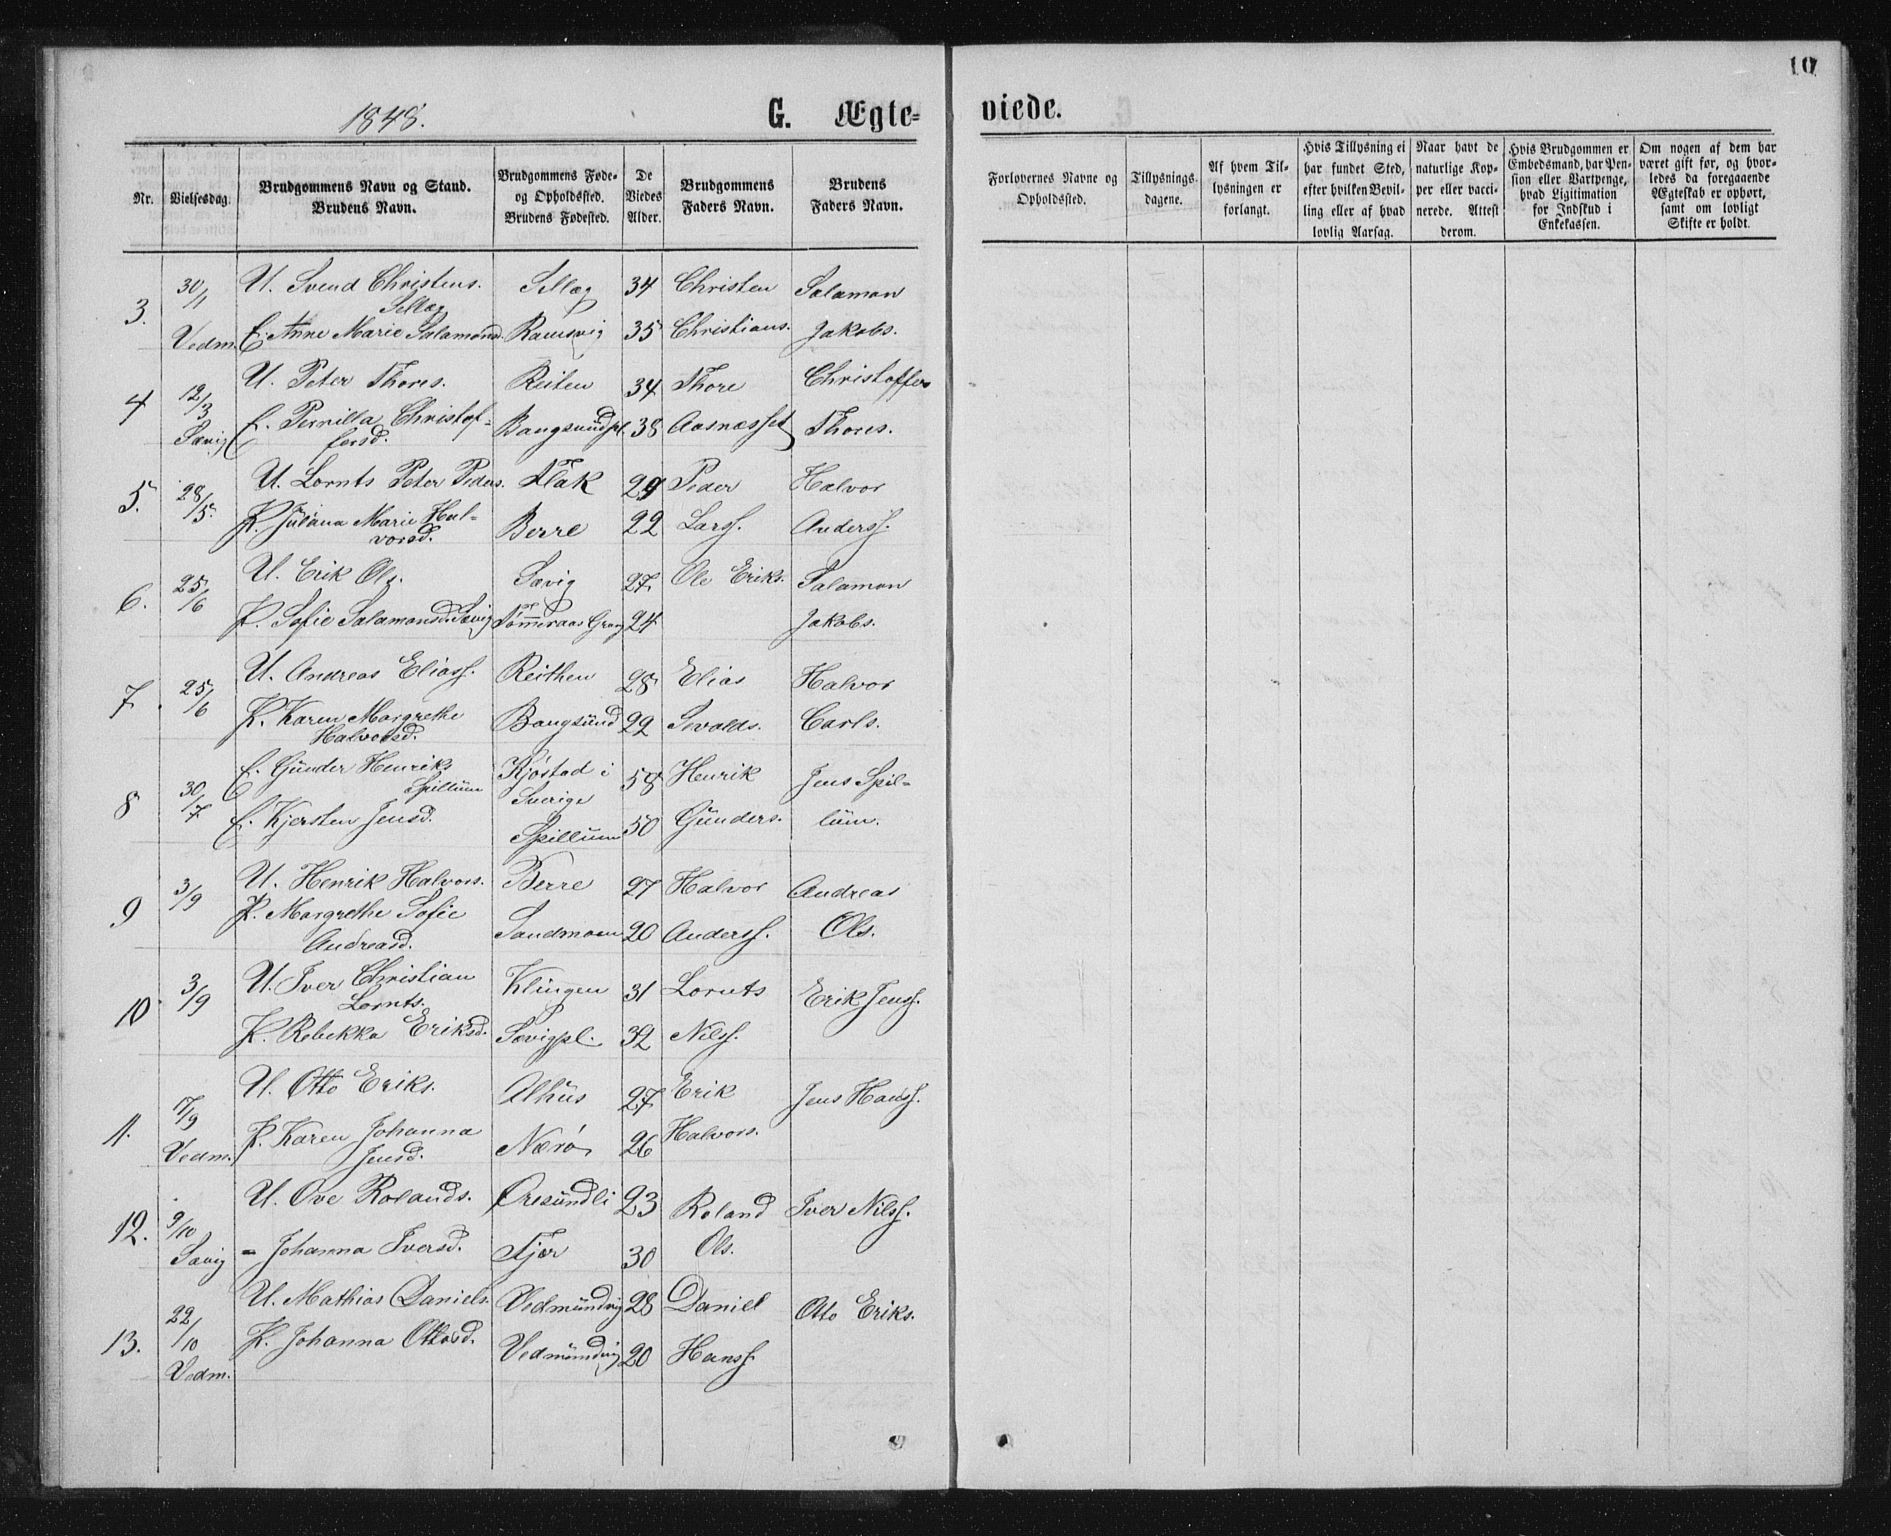 10
1848.
G. Ægte=
viede.
Nr.
Vielsesdag.
Brudgommens Navn og Stand.
Brudens Navn.
Brudgommens Føde-
og Opholdssted.
Brudens Fødested.
De
Viedes
Alder.
Brudgommens
Faders Navn.
Brudens
Faders Navn.
Forlovernes Navne og
Opholdssted.
Tillysnings-
dagene.
Af hvem Til-
lysningen er
forlangt.
Hvis Tillysning ei
har fundet Sted,
efter hvilken Bevil-
ling eller af hvad
lovlig Aarsag.
Naar havt de
naturlige Kop-
per eller vacci-
nerede. Attest
derom.
Hvis Brudgommen er
Embedsmand, har Pen-
sion eller Vartpenge,
hvad Ligitimation
for Indskud i
Enkekassen.
Om nogen af dem har
været gift før, og hvor-
ledes da foregaaende
Ægteskab er ophørt,
samt om lovligt
Skifte er holdt.
3. 30/1 U. Svend Christens. Sellæg 34 Christen Salamon
Sellæg
Vedm. E. Anne Marie Salamonsd. Ramsvig 35 Christians. Jakobs.
4 12/3 U. Peter Thores. Reiten 34 Thore Christoffer
Sævig E. Pernilla Christof- Bangsundpl. 38 Aasnæsset Thores.
fersd.
5. 28/5. U. Lornts Peter Peders. Flak 29 Peder Halvor
P. Juliana Marie Hal- Berre 22 Larss. Anderss.
vorsd.
6. 25/6 U. Erik Ols. Sævig 27 Ole Eriks. Salamon
P. Sofie Salamonsd. Sævig Tømmeraas Grong 24 Jakobs.
7. 25/6 U. Andreas Eliass. Reithen 28 Elias Halvor
P. Karen Margrethe Bangsund 22 Sevalds. Carls.
Halvorsd.
8 30/7 E. Gunder Henriks Kjøstad i 58 Henrik Jens Spil-
Spillum Sverige
E. Kjersten Jensd. Spillum 50 Gunders. lum.
9 3/9 U. Henrik Halvors. Berre 27 Halvor Andreas
P. Margrethe Sofie Sandmoen 20 Anderss. Ols.
Andreasd.
10 3/9 U. Iver Christian Klingen 31 Lornts Erik Jenss.
Lornts.
P. Rebekka Eriksd. Sævigpl. 32 Nilss.
11. 17/9 U. Otto Eriks. Alhus 27 Erik Jens Hanss.
Vedm. P. Karen Johanna Nærø 26 Halvors.
Jensd.
12. 9/10 U. Ove Rolands. Øresundli 23 Roland Iver Nilss.
Sævig - Johanna Iversd. Fjær 30 Ols.
13. 22/10 U. Mathias Daniels. Vedmundvig 28 Daniel Otto Eriks.
Vedm. P. Johanna Ottosd. Vedmundvig 20 Hanss.